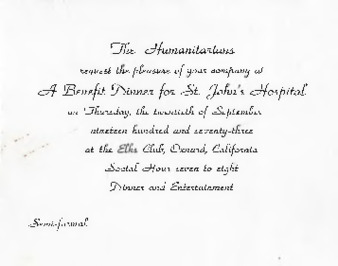 The Humanitarians
request the pleasure of your company at
A Benefit Dinner for St. John's Hospital
on Thursday, the twentieth of September
nineteen hundred and seventy-three
at the Elks Club, Oxnard, California
Social Hour seven to eight
Dinner and Entertainment
Semi-formal